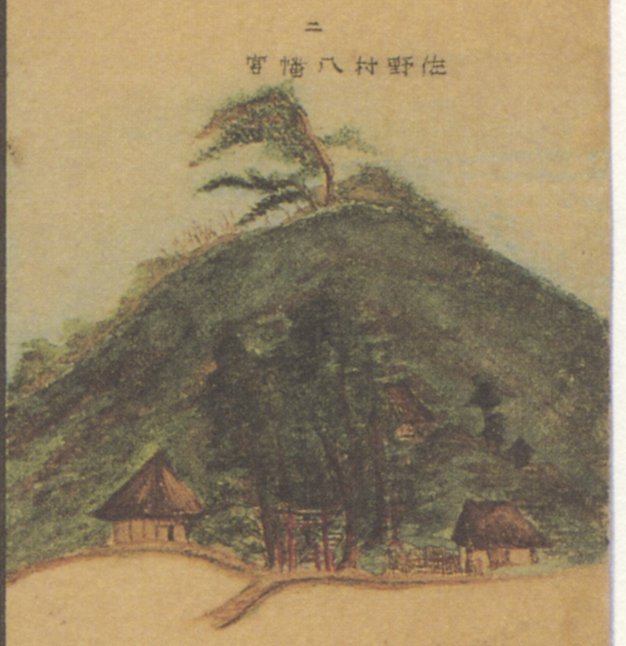 二
佐野村八幡宮